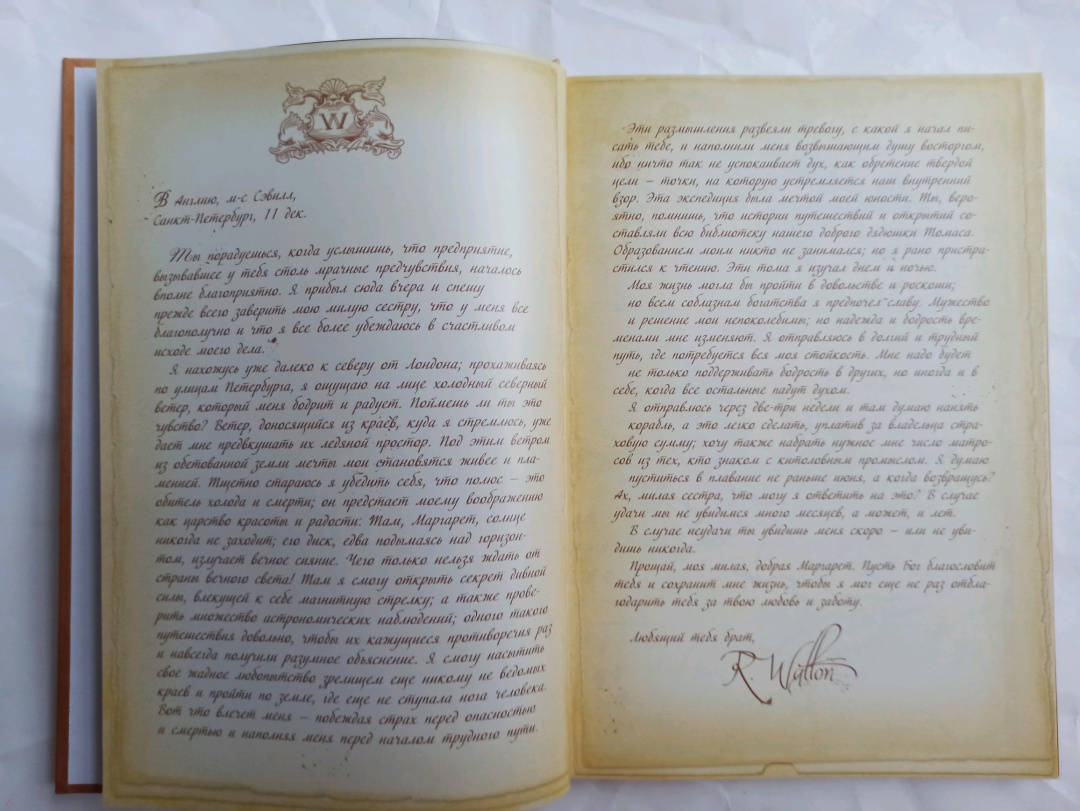 W
В Англию, м-с Сэвилл,
Санкт-Петербург, 11 дек.
Ты порадуешься, когда услышишь, что предприятие,
вызывавшее у тебя столь мрачные предчувствия, началось
вполне благоприятно. Я прибыл сюда вчера и спешу
прежде всего заверить мою милую сестру, что у меня все
благополучно и что я все более убеждаюсь в счастливом
исходе моего дела.
Я нахожусь уже далеко к северу от Лондона; прохаживаясь
по улицам Петербурга, я ощущаю на лице холодный северный
ветер, который меня бодрит и радует. Поймешь ли ты это
чувство? Ветер, доносящийся из краёв, куда я стремлюсь, уже
дает мне предвкушать их ледяной простор. Под этим ветром
из обетованной земли мечты мои становятся живее и пла-
менней. Тщетно стараюсь я убедить себя, что полюс – это
обитель холода и смерти; он предстает моему воображению
как царство красоты и радости. Там, Маргарет, солнце
никогда не заходит; его диск, едва подымаясь над горизон-
том, излучает вечное сияние. Чего только нельзя ждать от
страны вечного света! Там я смогу открыть секрет дивной
силы, влекущей к себе магнитную стрелку; а также прове-
рить множество астрономических наблюдений; одного такого
путешествия довольно, чтобы их кажущиеся противоречия раз
и навсегда получили разумное объяснение. Я смогу насытить
свое жадное любопытство зрелищем еще никому не ведомых
краев и пройти по земле, где еще не ступала нога человека.
Вот что влечет меня – побеждая страх перед опасностью
и смертью и наполняя меня перед началом трудного пути.
Эти размышления развеяли тревогу, с какой я начал пи-
сать тебе, и наполнили меня возвышающим душу восторгом,
ибо ничто так не успокаивает дух, как обретение твердой
цели – точки, на которую устремляется наш внутренний
взор. Эта экспедиция была мечтой моей юности. Ты, веро-
ятно, помнишь, что истории путешествий и открытий со-
ставляли всю библиотеку нашего доброго дядюшки Томаса.
Образованием моим никто не занимался; но я рано пристра-
стился к чтению. Эти тома я изучал днем и ночью.
Моя жизнь могла бы пройти в довольстве и роскоши;
но всем соблазнам богатства я предпочел славу. Мужество
и решение мои непоколебимы; но надежда и бодрость вре-
менами мне изменяют. Я отправляюсь в долгий и трудный
путь, где потребуется вся моя стойкость. Мне надо будет
не только поддерживать бодрость в других, но иногда и в
себе, когда все остальные падут духом.
Я отправлюсь через две-три недели и там думаю нанять
корабль, а это легко сделать, уплатив за владельца стра-
ховую сумму; хочу также набрать нужное мне число матро-
сов из тех, кто знаком с китоловным промыслом. Я думаю
пуститься в плавание не раньше июня, а когда возвращусь?
Ах, милая сестра, что могу я ответить на это? В случае
удачи мы не увидимся много месяцев, а может, и лет.
В случае неудачи ты увидишь меня скоро – или не уви-
дишь никогда.
Прощай, моя милая, добрая Маргарет. Пусть Бог благословит
тебя и сохранит мне жизнь, чтобы я мог еще не раз отбла-
годарить тебя за твою любовь и заботу.
Любящий тебя брат,
R Walton